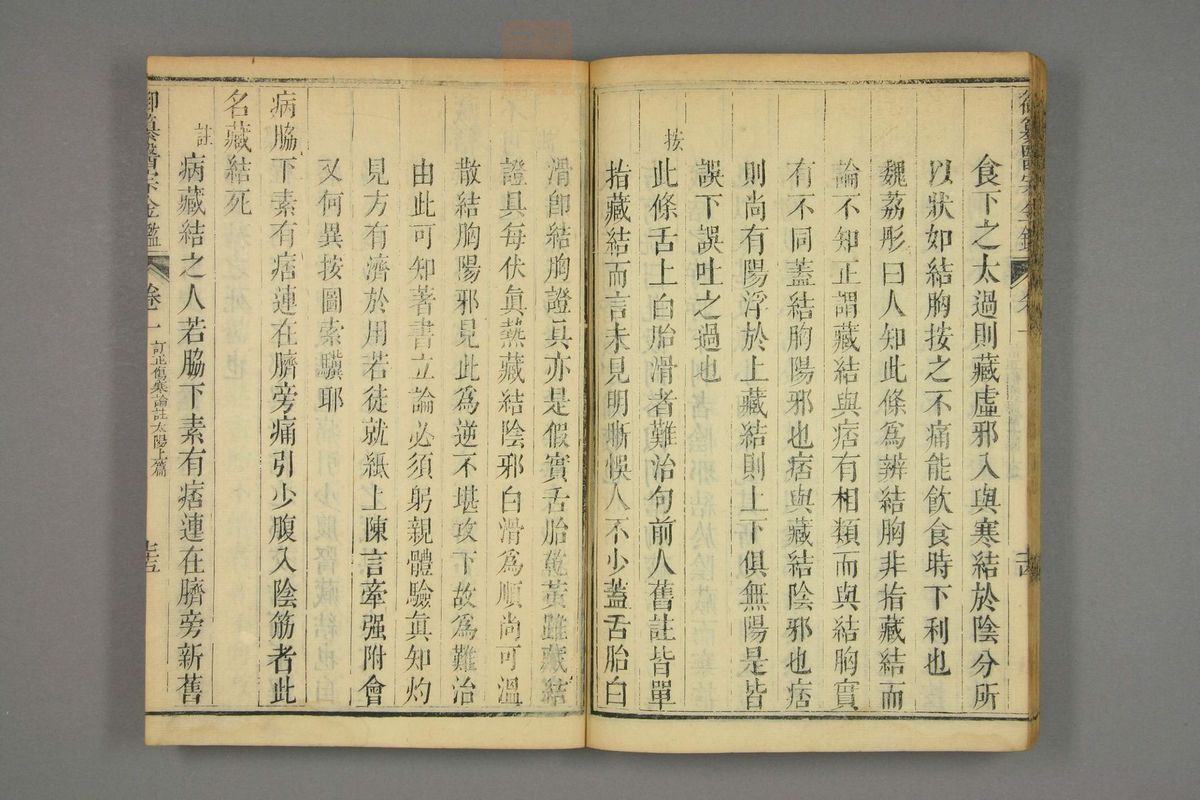 食下之太過則藏虛邪入與寒結於陰分所
以狀如結胸按之不痛能飲食時下利也
魏荔彤曰人知此條為辨結胸非指藏結而
論不知正謂藏結與痞有相類而與結胸實
有不同蓋結胸陽邪也痞與藏結陰邪也痞
則尚有陽浮於上藏結則上下俱無陽是皆
誤下誤吐之過也
按此條舌上白胎滑者難治句前人舊註皆單
指藏結而言未見明晰悞人不少蓋舌胎白
滑即結胸證具亦是假實舌胎乾黃雖藏結
證具每伏眞熱藏結陰邪白滑爲順尚可溫
散結胸陽邪見此爲逆不堪攻下故爲難治
由此可知著書立論必須躬親體驗眞知灼
見方有濟於用若徒就紙上陳言牽强附會
又何異按圖索驥耶
病脇下素有痞連在臍旁痛引少腹入陰筋者此
名藏結死
註病藏結之人若脇下素有痞連在臍旁新舊
御纂醫宗金鑑 卷一 訂正傷寒論註太陽上篇